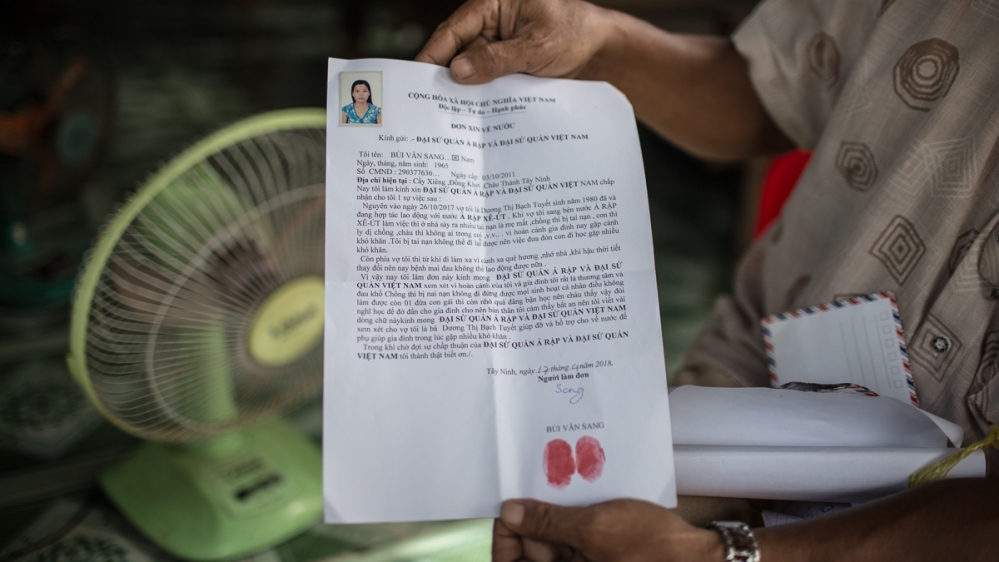 CỘNG HÒA XÃ HỘI CHỦ NGHĨA VIỆT NAM
Độc lập – Tự do – Hạnh phúc
ĐƠN XIN VỀ NƯỚC
Kính gửi: - ĐẠI SỨ QUÁN Ả RẬP VÀ ĐẠI SỨ QUÁN VIỆT NAM
Tôi tên: BÙI VĂN SANG... ☒ Nam
Ngày, tháng, năm sinh: 1965
Số CMND : 290377636... Ngày cấp: 03/10/2011
Địa chỉ hiện tại : Cầy Xiêng ,Đồng Khởi ,Châu Thành Tây Ninh
Nay tôi làm kính xin ĐẠI SỨ QUÁN Ả RẬP VÀ ĐẠI SỨ QUÁN VIỆT NAM chấp
nhận cho tôi 1 sự việc sau :
Nguyên vào ngày 26/10/2017 vợ tôi là Dương Thị Bạch Tuyết sinh năm 1980 đã và
đang hợp tác lao động với nước Ả RẬP XÊ-ÚT , Khi vợ tôi sang bên nước Ả RẬP
XÊ-ÚT làm việc thì ở nhà sảy ra nhiều tai nạn là mẹ mất, chồng thì bị tai nạn , con thì
ly dị chồng ,cháu thì không ai trong coi ,v.v... . vì hoàn cảnh gia đình nay gặp cảnh
khó khăn .Tôi bị tai nạn không thể đi lại được nên việc đưa đón con đi học gặp nhiều
khó khăn.
Còn phía vợ tôi thì từ khi đi làm xa vì cảnh xa quê hương ,nhớ nhà ,khí hậu thời tiết
thay đổi nên nay bệnh mai đau không thể lao động được nữa .
Vì vậy nay tôi làm đơn này kính mong ĐẠI SỨ QUÁN Ả RẬP VÀ ĐẠI SỨ
QUÁN VIỆT NAM xem xét vì hoàn cảnh của tôi và gia đình tôi rất là thương tâm và
đau khổ Chồng thì bị nai nạn không đi đứng được mọi sinh hoạt cá nhân điều không
làm được còn 01 đứa con gái thì còn nhỏ quá đáng bận học nên cháu thấy vậy đòi
nghĩ học để đở đần cho gia đình cho nên bản thân tôi cảm thấy bất an nên tôi viết vài
dòng chữ nàykính mong ĐẠI SỨ QUÁN Ả RẬP VÀ ĐẠI SỨ QUÁN VIỆT NAM
xem xét cho vợ tôi là bà Dương Thị Bạch Tuyết giúp đỡ và hỗ trợ cho về nước để
phụ giúp gia đình trong lúc gặp nhiều khó khăn .
Trong khi chờ đợi sự chấp thuận của ĐẠI SỨ QUÁN Ả RẬP VÀ ĐẠI SỨ QUÁN
VIỆT NAM tôi thành thật biết ơn./.
Tây Ninh, ngày 17 tháng 4 năm 2018.
Người làm đơn
Sang
BÙI VĂN SANG